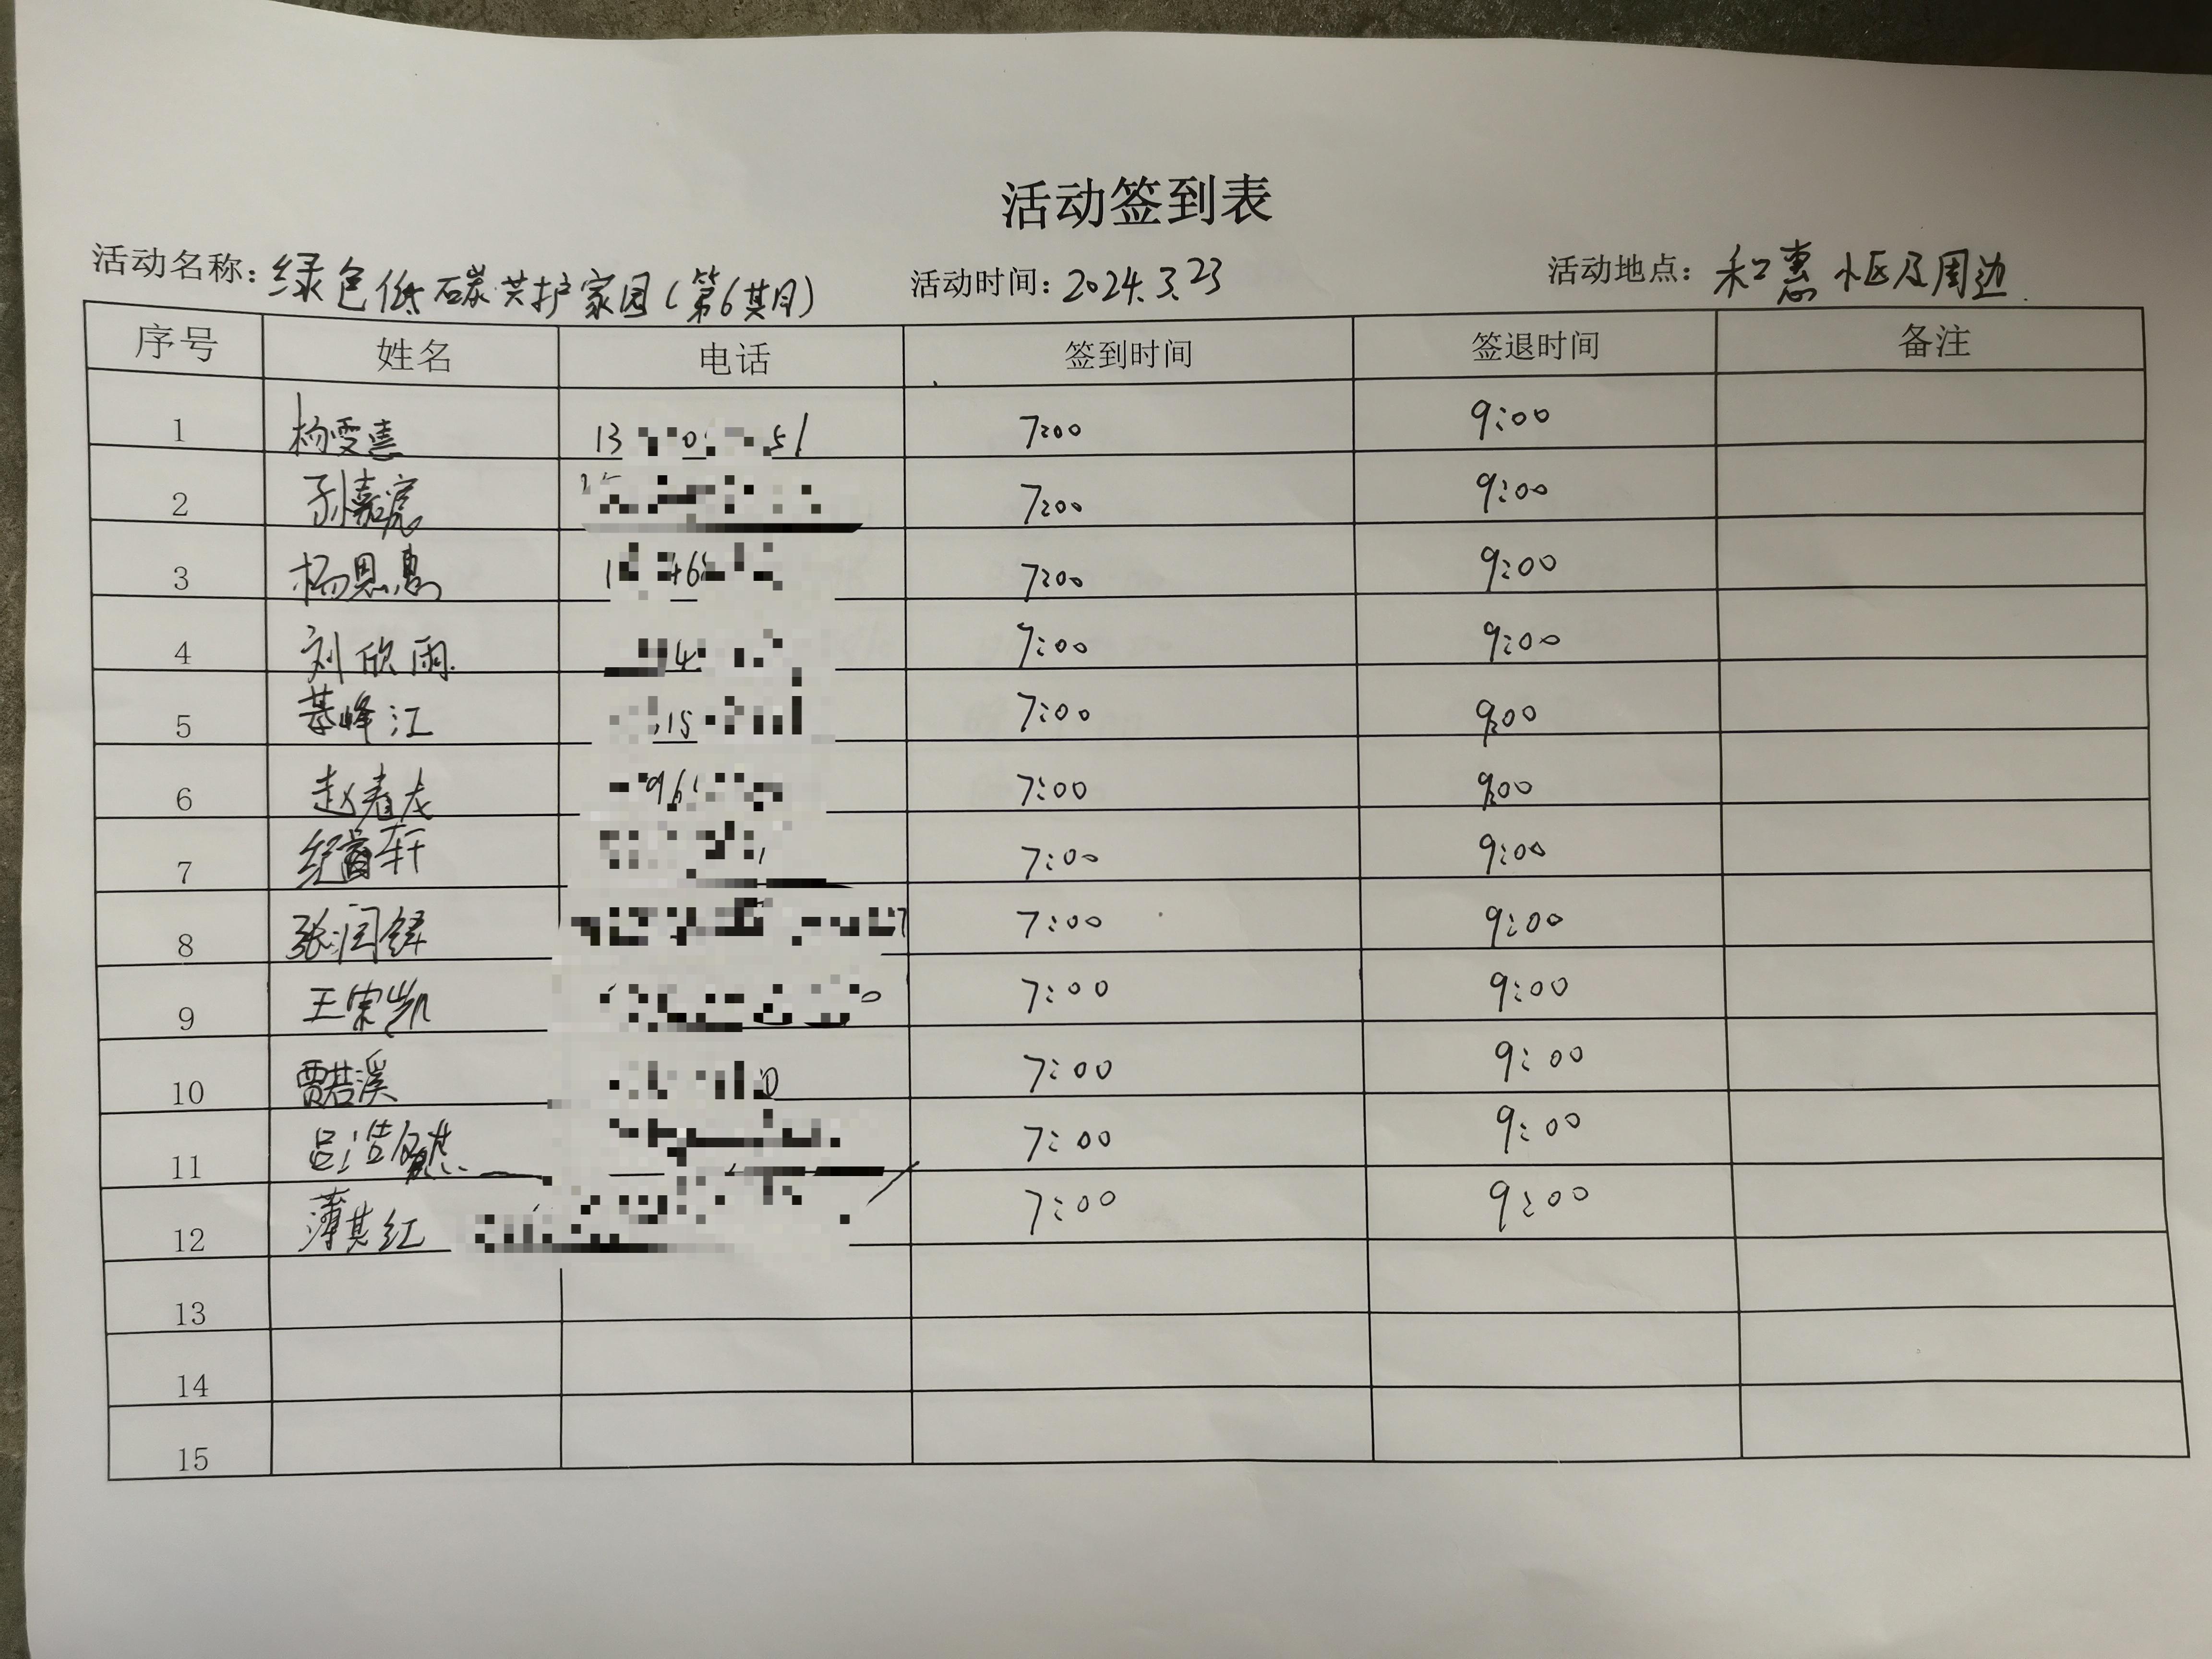 活动签到表
活动名称：绿色低碳共护家园（第6期） 活动时间：2024.3.23 活动地点：和惠小区及周边
序号 姓名 电话 签到时间 签退时间 备注
1 杨雯惠 7:00 9:00
2 孙嘉 7:00 9:00
3 杨恩惠 7:00 9:00
4 刘欣雨 7:00 9:00
5 綦峰江 7:00 9:00
6 赵春龙 7:00 9:00
7 轩 7:00 9:00
8 张润铎 7:00 9:00
9 王宗凯 7:00 9:00
10 贾若溪 7:00 9:00
11 吕浩 7:00 9:00
12 薄其红 7:00 9:00
13
14
15